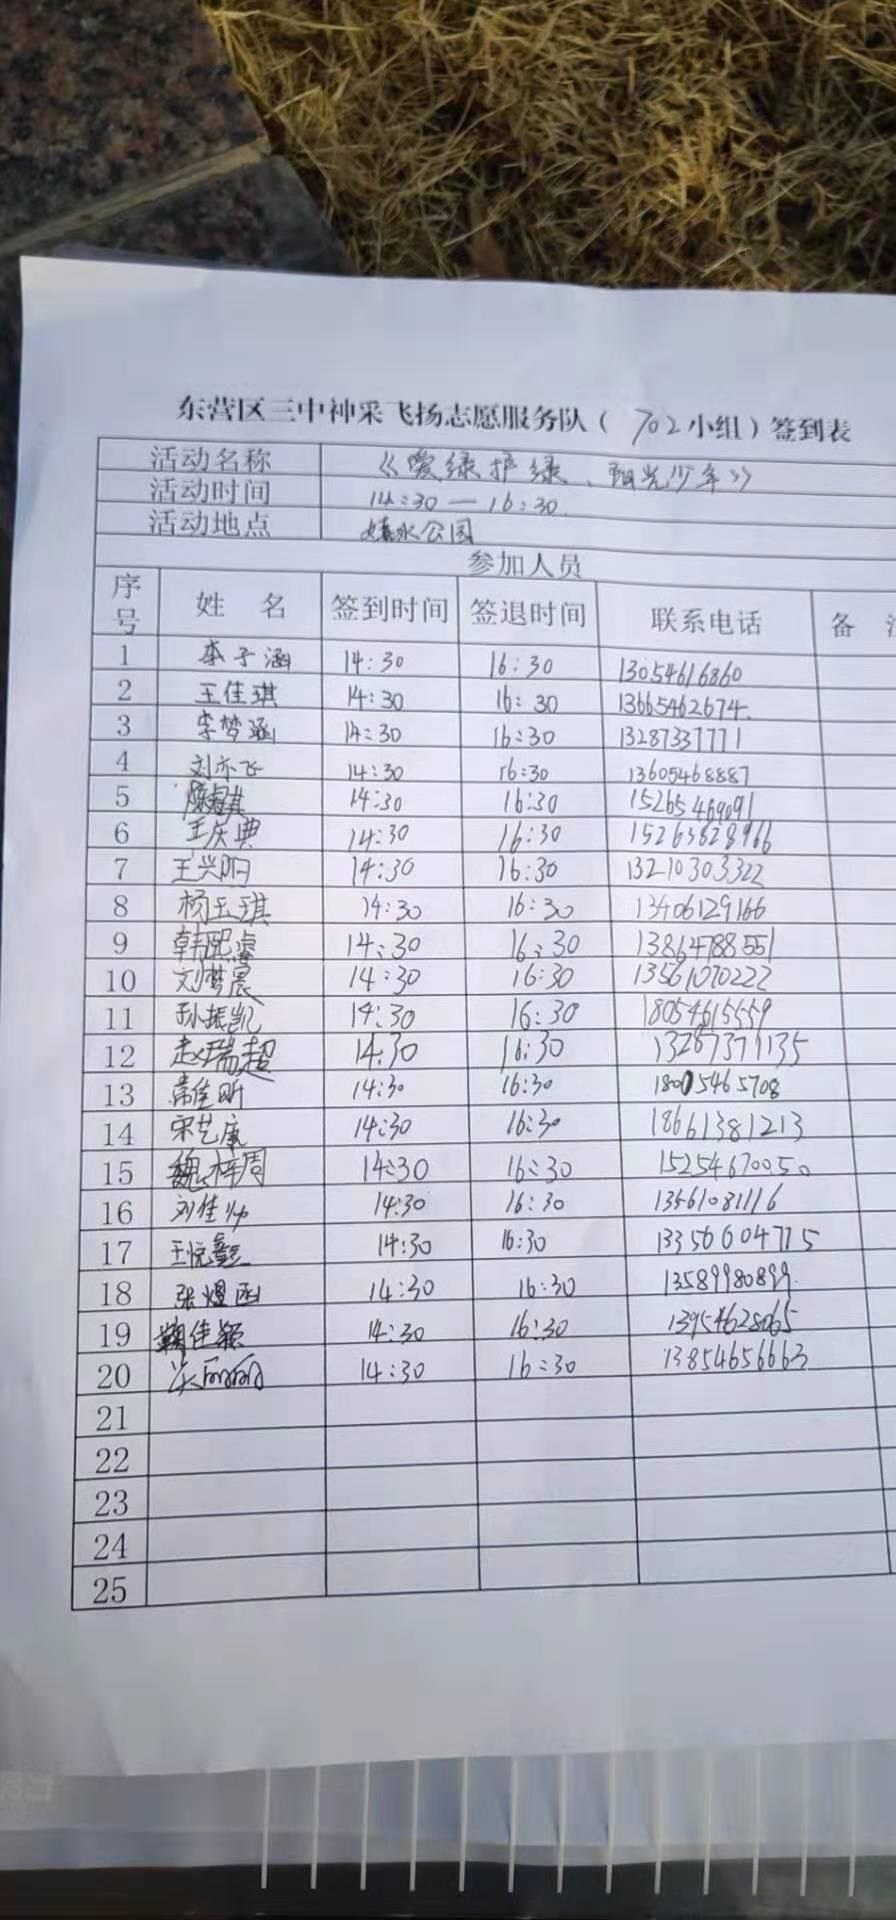 东营区三中神采飞扬志愿服务队（702小组）签到表
活动名称 《爱绿护绿、阳光少年》
活动时间 14:30—16:30
活动地点 嬉水公园
参加人员
序号 姓名 签到时间 签退时间 联系电话 备
1 李子涵 14:30 16:30 13054616860
2 王佳琪 14:30 16:30 13665462674
3 李梦涵 14:30 16:30 13287337771
4 刘亦飞 14:30 16:30 13605468887
5 14:30 16:30 15265469091
6 王庆典 14:30 16:30 15263628966
7 王兴阳 14:30 16:30 13210303322
8 杨玉琪 14:30 16:30 13406129166
9 韩熙睿 14:30 16:30 13864788551
10 刘梦晨 14:30 16:30 13561070222
11 孙振凯 14:30 16:30 18054615559
12 赵瑞超 14:30 16:30 13287371135
13 常佳昕 14:30 16:30 18005465708
14 宋艺康 14:30 16:30 18661381213
15 魏梓周 14:30 16:30 15254670050
16 刘佳帅 14:30 16:30 13561081116
17 王悦鑫 14:30 16:30 13356604715
18 张煜函 14:30 16:30 13589980899
19 鞠佳颖 14:30 16:30 13954628065
20 14:30 16:30 13854656663
21
22
23
24
25